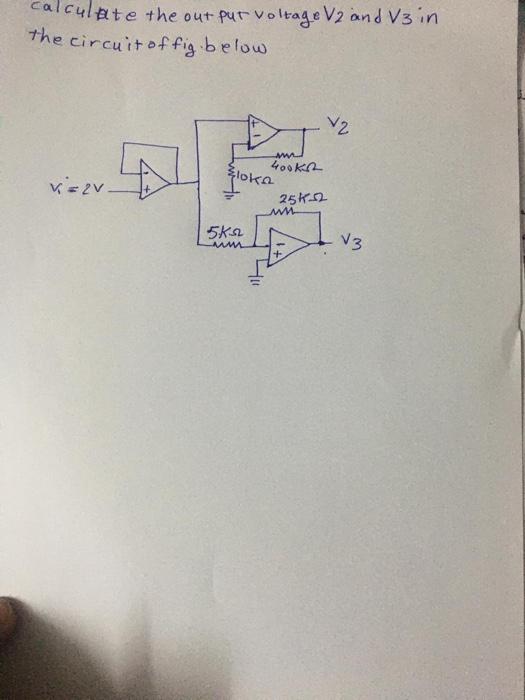 calculate the out put voltage V2 and V3 in
the circuit of fig. below
+
-
V2
400KΩ
10KΩ
-
+
Vi = 2V
25KΩ
5KΩ
-
+
V3